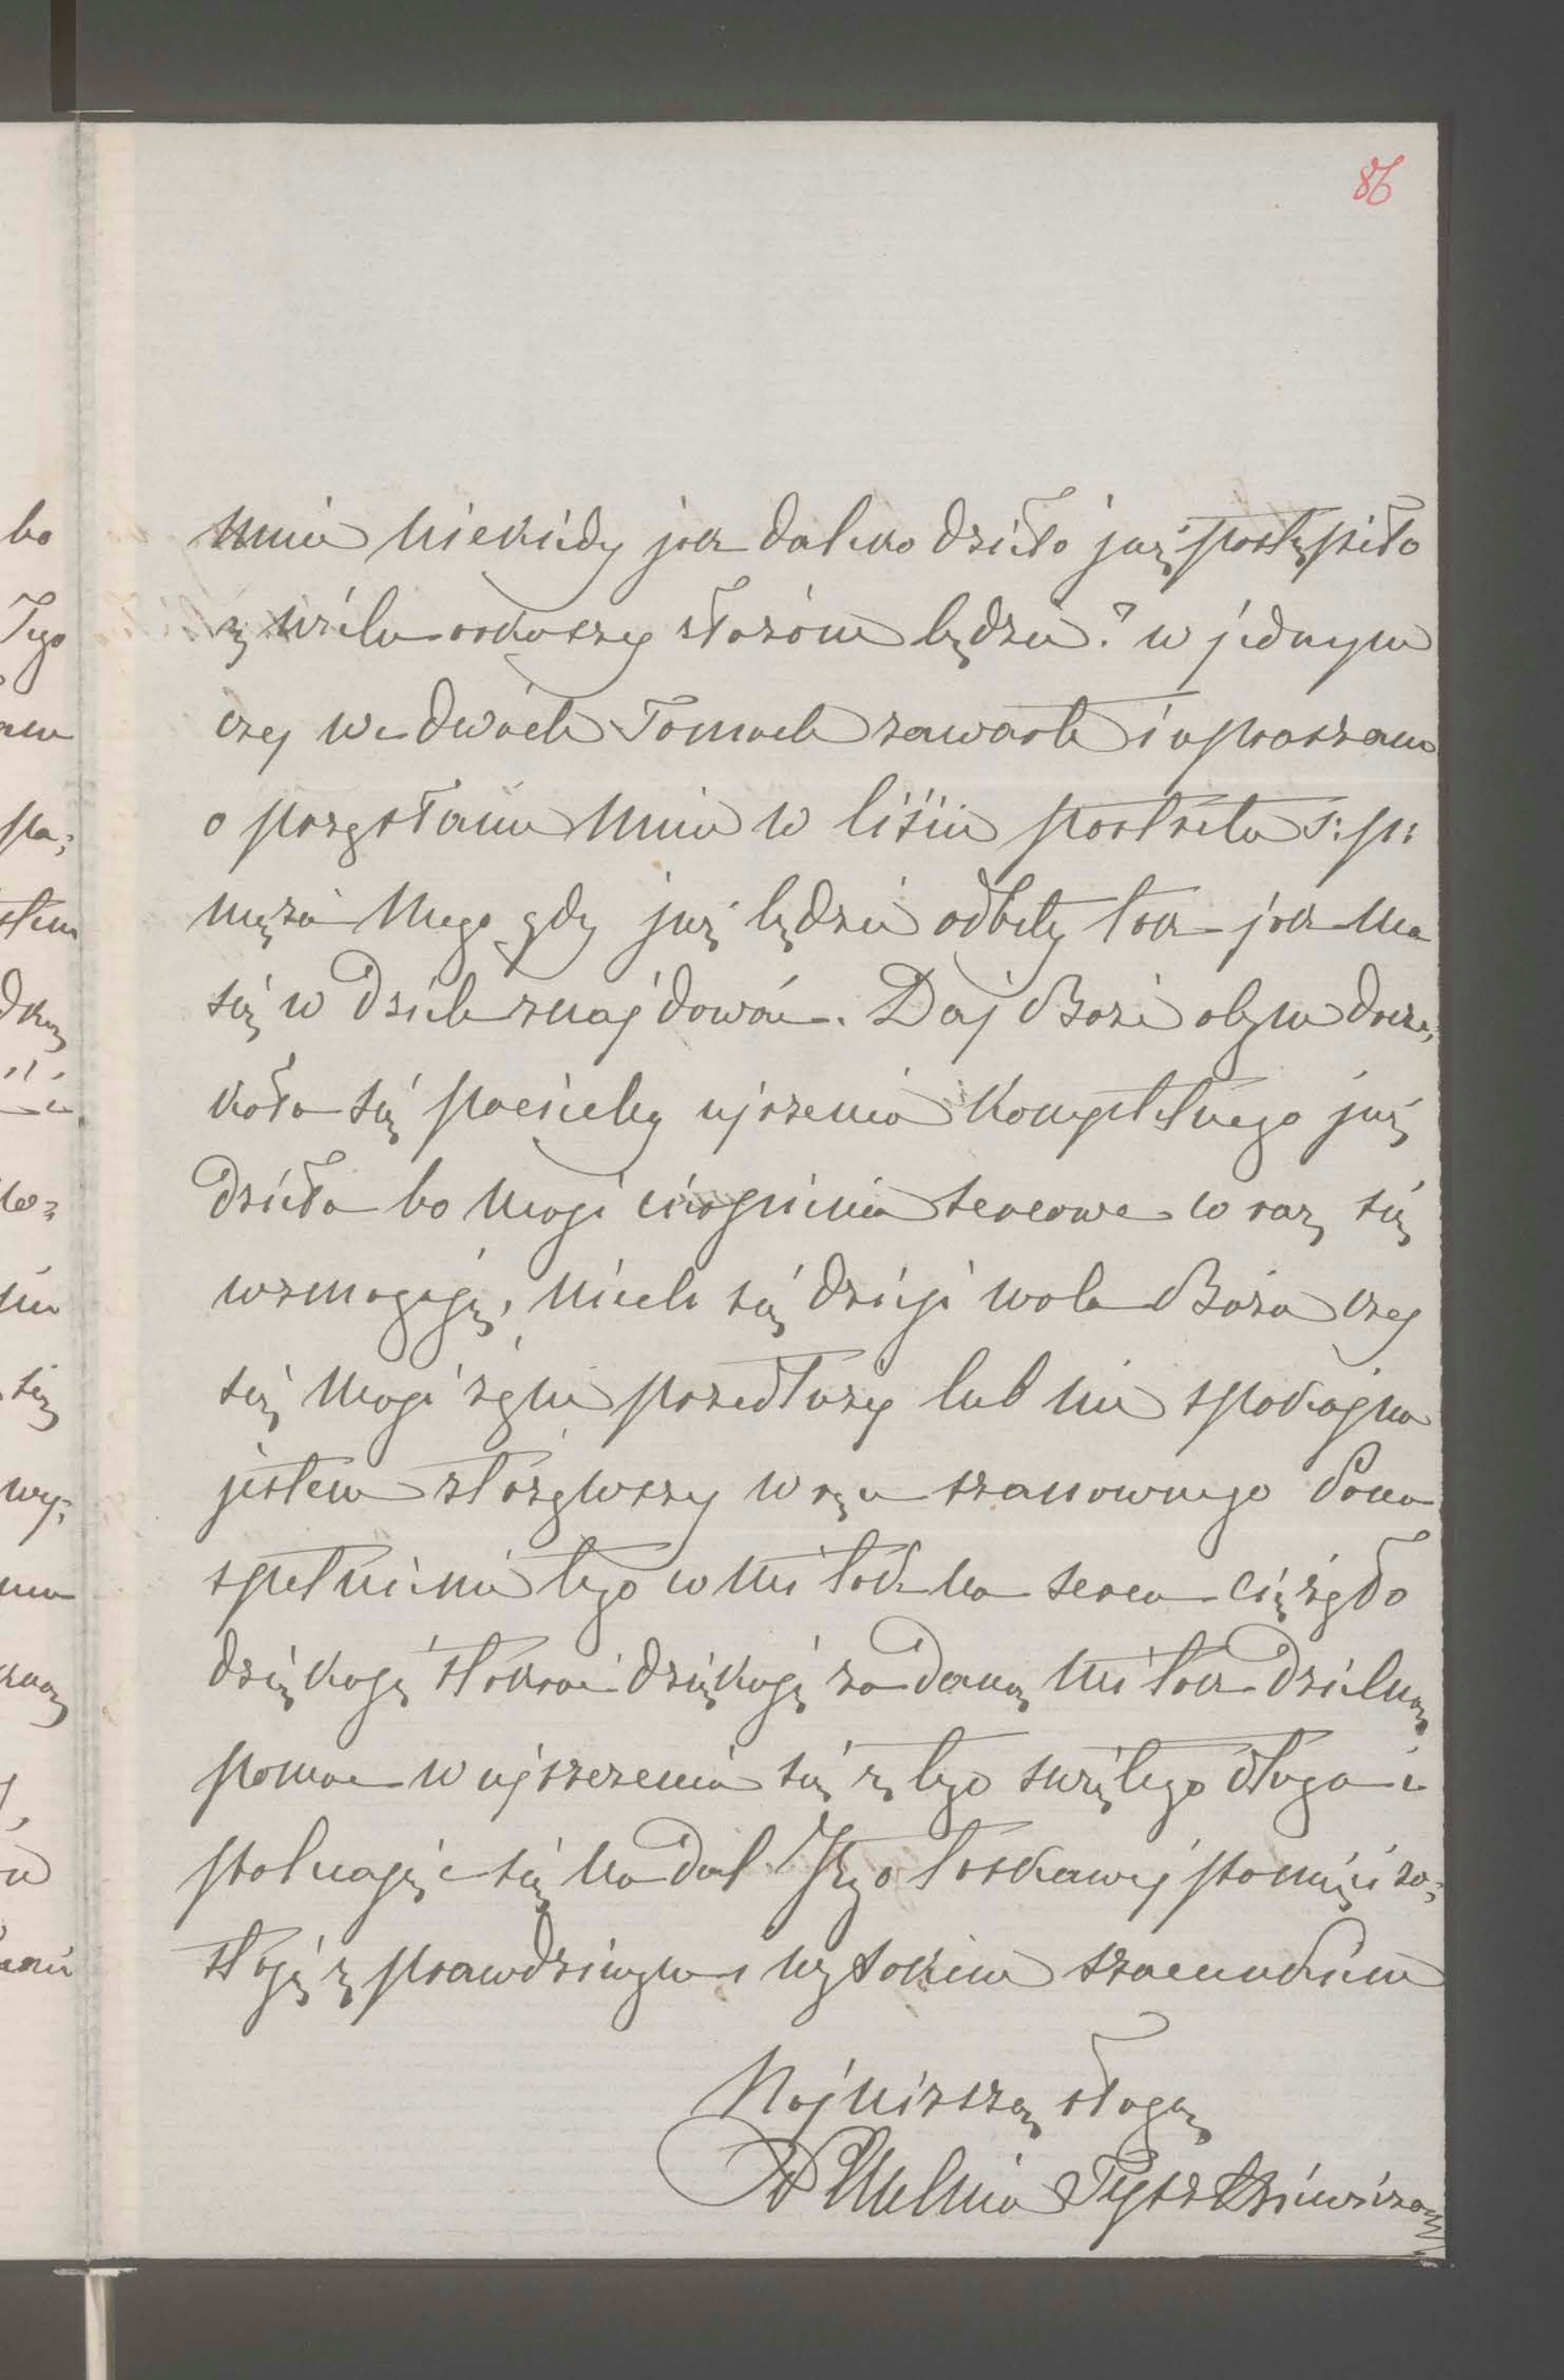 86
mnie niekiedy jak daleko dzieło już postąpiło
z wielu arkuszy złożone będzie? w jednym
czy we dwóch Tomach zawarte i upraszam
o przysłanie mnie w liście portretu ś: p:
męża mego gdy już będzie odbity tak jak ma
się w dziele znajdować. Daj Boże abym docze,
kała się pociechy ujrzenia kompletnego już
dzieła bo moje cierpienia sercowe co raz się
wzmagają, niech się dzieje wola Boża czy
się moje życie przedłuży lub nie spokojna
jestem złożywszy w ręce szanownego Pana
spełnienie tego co mi tak na sercu ciężyło
dziękuję stokroć dziękuję za daną mi tak dzielną
pomoc w uiszczeniu się z tego świętego długu i
polecając się nadal Jego łaskawej pamięci zo;
staję z prawdziwym i wysokim szacunkiem
Najniższą sługą
Wilhelmina Tyszkiewiczowa
bo
Tego
pa;
stem
się
wy;